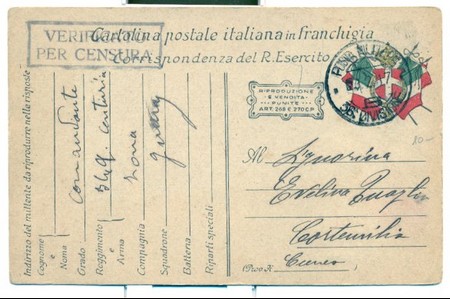 Cartolina postale italiana in franchigia
Corrispondenza del R. Esercito
VERIFICATO
PER CENSURA
RIPRODUZIONE
E VENDITA
PUNITE
ART. 268 E 270 C.P.
POSTA MILITARE
DIVISIONE
10-
Al Signorina
Evelina
Cortemilia
(Prov. di) Cuneo
Indirizzo del mittente da riprodurre nella risposta
Cognome e
Nome
Grado comandante
Reggimento o
Arma
centuria
Compagnia zona
Squadrone guerra
Batteria
Riparti speciali